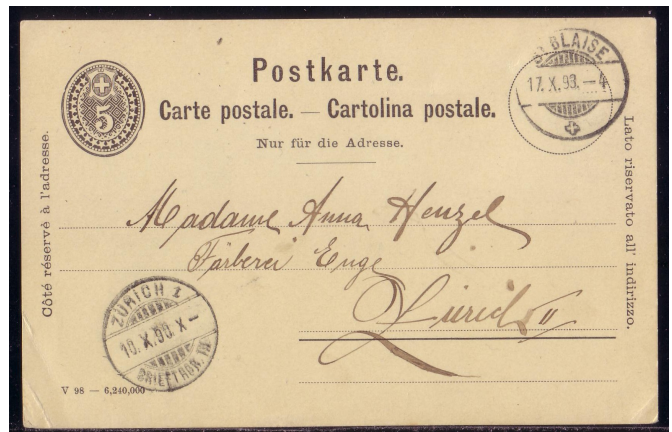 Postkarte.
Carte postale. — Cartolina postale.
Nur für die Adresse.
5
ST BLAISE
17. X. 98. — 4
Côté réservé à l'adresse.
Lato riservato all' indirizzo.
Madame Anna Henzel
Färberei Enge
Zürich II
ZÜRICH 1
18. X. 98. X —
BRIEFTRGR. III
V 98 — 6,240,000